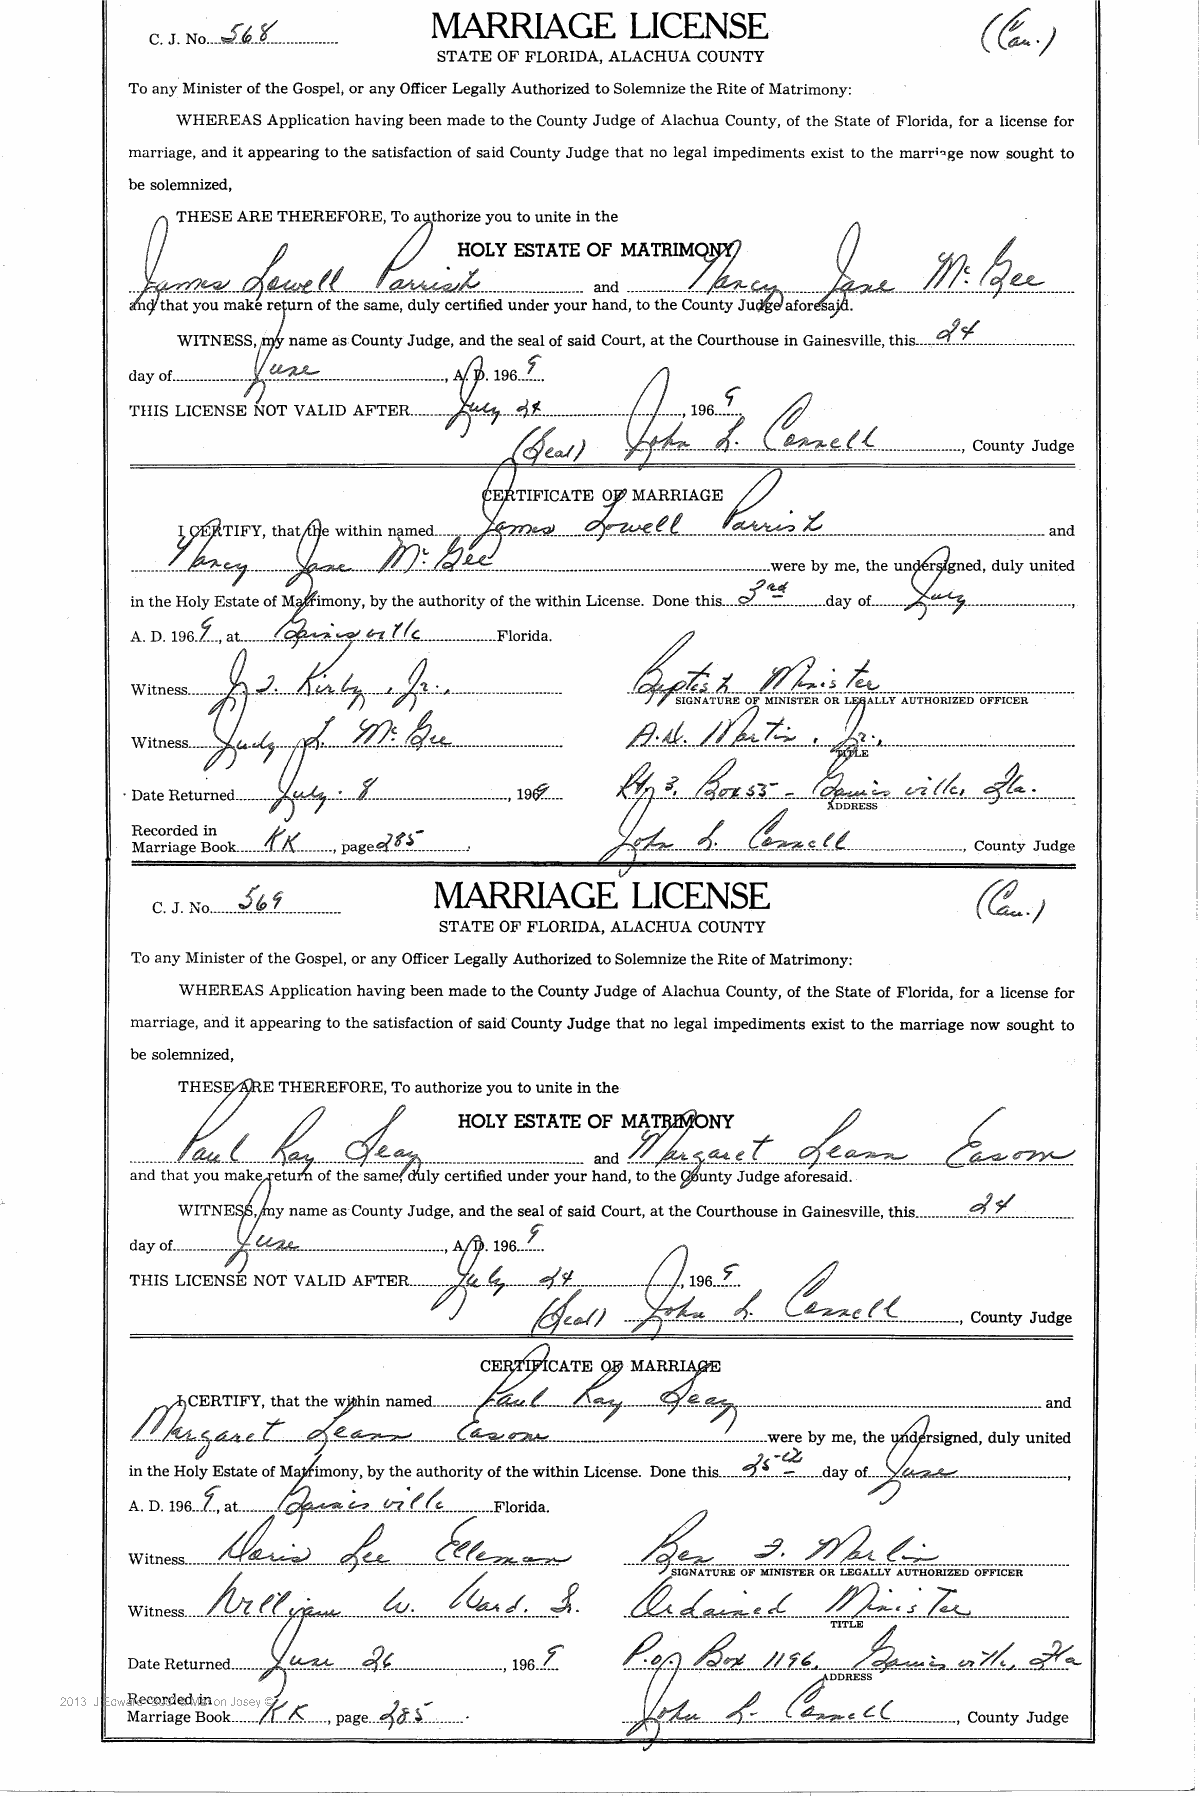 C. J. No. 568 MARRIAGE LICENSE (Cau.)
STATE OF FLORIDA, ALACHUA COUNTY
To any Minister of the Gospel, or any Officer Legally Authorized to Solemnize the Rite of Matrimony:
WHEREAS Application having been made to the County Judge of Alachua County, of the State of Florida, for a license for
marriage, and it appearing to the satisfaction of said County Judge that no legal impediments exist to the marriage now sought to
be solemnized,
THESE ARE THEREFORE, To authorize you to unite in the
HOLY ESTATE OF MATRIMONY
James Lowell Parrish and Nancy Jane McGee
and that you make return of the same, duly certified under your hand, to the County Judge aforesaid.
WITNESS, my name as County Judge, and the seal of said Court, at the Courthouse in Gainesville, this 24
day of June, A. D. 1969
THIS LICENSE NOT VALID AFTER July 24, 1969
(Seal) John L. Connell, County Judge
CERTIFICATE OF MARRIAGE
I CERTIFY, that the within named James Lowell Parrish and
Nancy Jane McGee were by me, the undersigned, duly united
in the Holy Estate of Matrimony, by the authority of the within License. Done this 3rd day of July,
A. D. 1969, at Gainesville Florida.
Witness J. T. Kirby, Jr., Baptist Minister
SIGNATURE OF MINISTER OR LEGALLY AUTHORIZED OFFICER
Witness Judy L. McGee A.D. Martin, Jr.,
TITLE
Date Returned July 8, 1969 Rt, 3, Box 55 - Gainesville, Fla.
ADDRESS
Recorded in
Marriage Book KK, page 285 John L. Connell, County Judge
C. J. No. 569 MARRIAGE LICENSE (Cau.)
STATE OF FLORIDA, ALACHUA COUNTY
To any Minister of the Gospel, or any Officer Legally Authorized to Solemnize the Rite of Matrimony:
WHEREAS Application having been made to the County Judge of Alachua County, of the State of Florida, for a license for
marriage, and it appearing to the satisfaction of said County Judge that no legal impediments exist to the marriage now sought to
be solemnized,
THESE ARE THEREFORE, To authorize you to unite in the
HOLY ESTATE OF MATRIMONY
Paul Ray Seay and Margaret Leann Eason
and that you make return of the same, duly certified under your hand, to the County Judge aforesaid.
WITNESS, my name as County Judge, and the seal of said Court, at the Courthouse in Gainesville, this 24
day of June, A. D. 1969
THIS LICENSE NOT VALID AFTER July 24, 1969
(Seal) John L. Connell, County Judge
CERTIFICATE OF MARRIAGE
I CERTIFY, that the within named Paul Ray Seay and
Margaret Leann Eason were by me, the undersigned, duly united
in the Holy Estate of Matrimony, by the authority of the within License. Done this 25th day of June,
A. D. 1969, at Gainesville Florida.
Witness Doris Lee Elleman Ben F. Martin
SIGNATURE OF MINISTER OR LEGALLY AUTHORIZED OFFICER
Witness William W. Ward. Sr. Ordained Minister
TITLE
Date Returned June 26, 1969 P.O. Box 1196, Gainesville, Fla
ADDRESS
2013 Josey ©
Recorded in
Marriage Book KK, page 285 John L. Connell, County Judge